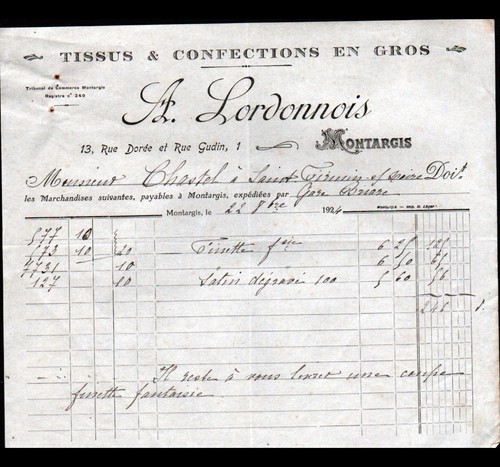 TISSUS & CONFECTIONS EN GROS
Tribunal de Commerce Montargis
Registre n° 240
A. Lordonnois
13, Rue Dorée et Rue Gudin, 1
MONTARGIS
Monsieur Chastel à Saint Firmin s/ Loire Doit
les Marchandises suivantes, payables à Montargis, expédiées par Gare Briare
Montargis, le 22 8bre 1924
577 10
673 10 20 Finette fsie 6 25 125
7731 10 6 50 65
127 10 Satin dégravé 100 5 60 56
246
Il reste à vous livrer une coupe
finette fantaisie